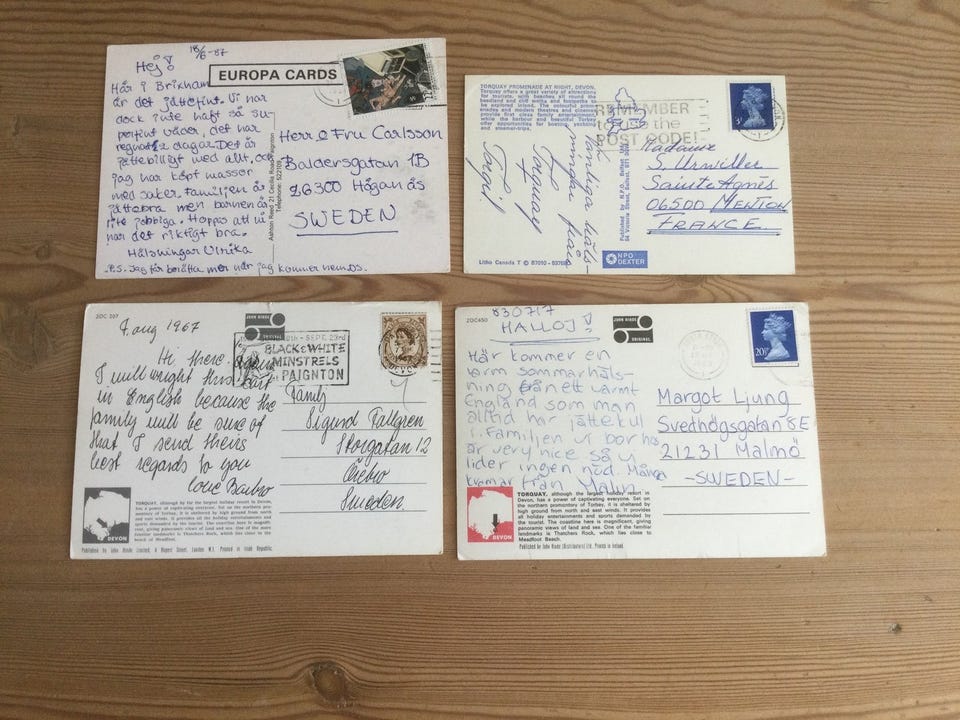 18/6-87
Hej!
EUROPA CARDS
Här i Brixham
är det jättefint. Vi har
dock inte haft så su-
perfint väder, det har
regnat några dagar. Det är
jättebilligt med allt, och
jag har köpt massor
med saker. Familjen är
jättebra men barnen är
lite jobbiga. Hoppas att ni
har det riktigt bra.
Hälsningar Ulrika
P.S. Jag får berätta mer när jag kommer hem. DS.
Ashton Reed 21 Cecilia Road Paignton
Telephone: 522109
Herr o Fru Carlsson
Baldersgatan 1B
26300 Höganäs
SWEDEN
TORQUAY PROMENADE AT NIGHT, DEVON.
Torquay offers a great variety of attractions
for tourists, with beaches all round the
headland and cliff walks and footpaths to
be explored inland. The colourful prom-
enades and modern theatres and cinemas
provide first class family entertainment,
while the harbour and beautiful Torbay
offer opportunities for boating, yachting
and steamer-trips.
REMEMBER
to use the
POST CODE!
hjärtliga häls-
ningar från
Torquay
Torgil
Published by N.P.O.
Litho Canada T © 87010 -
NPO
DEXTER
Madame
S. Urwiller
Sainte Agnès
06500 MENTON
FRANCE
2DC 207
7 aug 1967
JOHN HINDE
ORIGINAL
SEPT. 23rd
BLACK & WHITE
MINSTRELS
PAIGNTON
Hi there.
I will wright this card
in English because the
family will be sure of
that I send theirs
best regards to you
love Barbro
Familj
Sigurd Fallgren
Storgatan 12
Örebro
Sweden
DEVON
TORQUAY, although by far the largest holiday resort in Devon,
has a power of captivating everyone. Set on the northern pro-
montory of Torbay, it is sheltered by high ground from north and
east winds. It provides all the holiday entertainments and
sports demanded by the tourist. The coastline here is magnific-
ent, giving panoramic views of land and sea. One of the more
familiar landmarks is Thatchers Rock, which lies close to the
beach of Meadfoot.
Published by John Hinde Limited, 6 Rupert Street, London W.1. Printed in Irish Republic.
2DC450
830717
HALLOJ!
JOHN HINDE
ORIGINAL
20½P
Här kommer en
varm sommarhäls-
ning från ett varmt
England som man
alltid har jättekul
i. Familjen vi bor hos
är very nice så vi
lider ingen nöd. Många
kramar från Malin.
Margot Ljung
Svedhögsgatan 8E
21231 Malmö
-SWEDEN-
DEVON
TORQUAY, although the largest holiday resort in
Devon, has a power of captivating everyone. Set on
the northern promontory of Torbay, it is sheltered by
high ground from north and east winds. It provides
all holiday entertainments and sports demanded by
the tourist. The coastline here is magnificent, giving
panoramic views of land and sea. One of the familiar
landmarks is Thatchers Rock, which lies close to
Meadfoot Beach.
Published by John Hinde (Distributors) Ltd. Printed in Ireland.